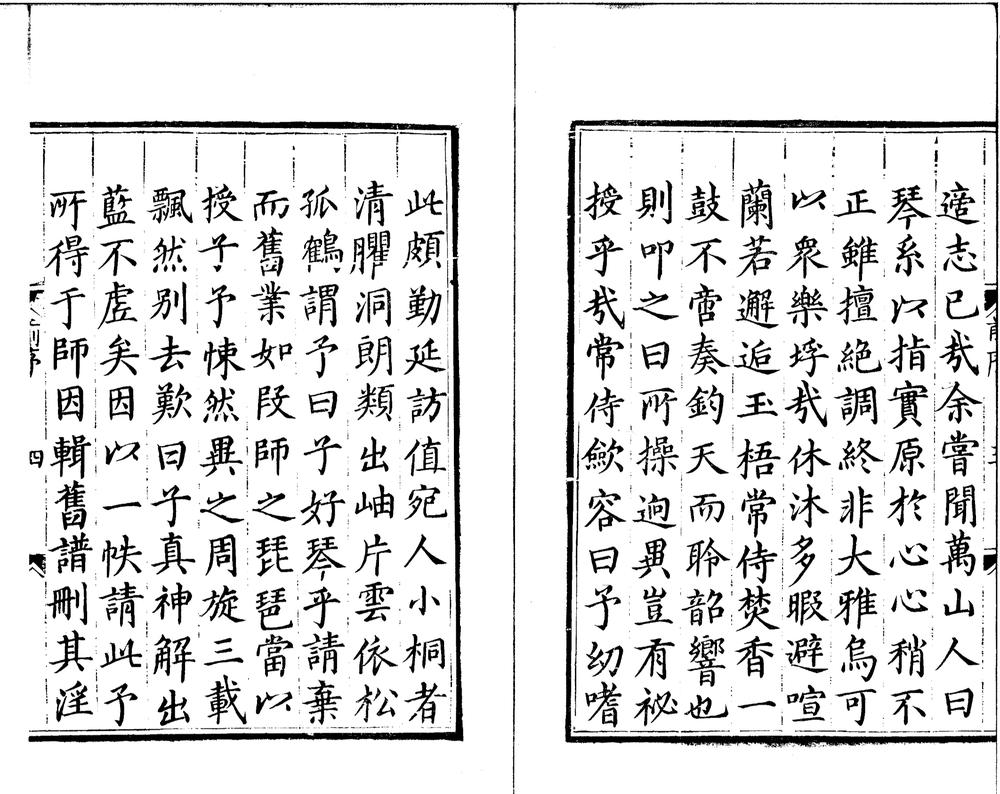 適志已㢤余嘗聞萬山人曰
琴系以指實原於心心稍不
正雖擅絕調終非大雅烏可
以衆樂垺㢤休沐多暇避喧
蘭若邂逅玉梧常侍焚香一
鼓不啻奏鈞天而聆韶響也
則叩之曰所操逈異豈有祕
授乎㢤常侍歛容曰予幼嗜
此頗勤延訪值宛人小桐者
清臞洞朗類出岫片雲依松
孤鶴謂予曰子好琴乎請棄
而舊業如段師之琵琶當以
授子予悚然異之周旋三載
飄然別去歎曰子真神解出
藍不虛矣因以一帙請此予
所得于師因輯舊譜刪其淫
四